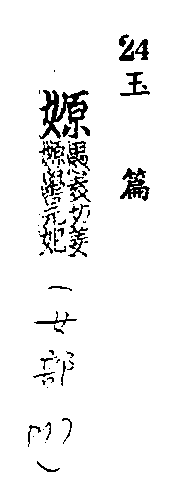 24 玉篇
嫄
愚袁切姜
嫄嚳元妃
(女部
)